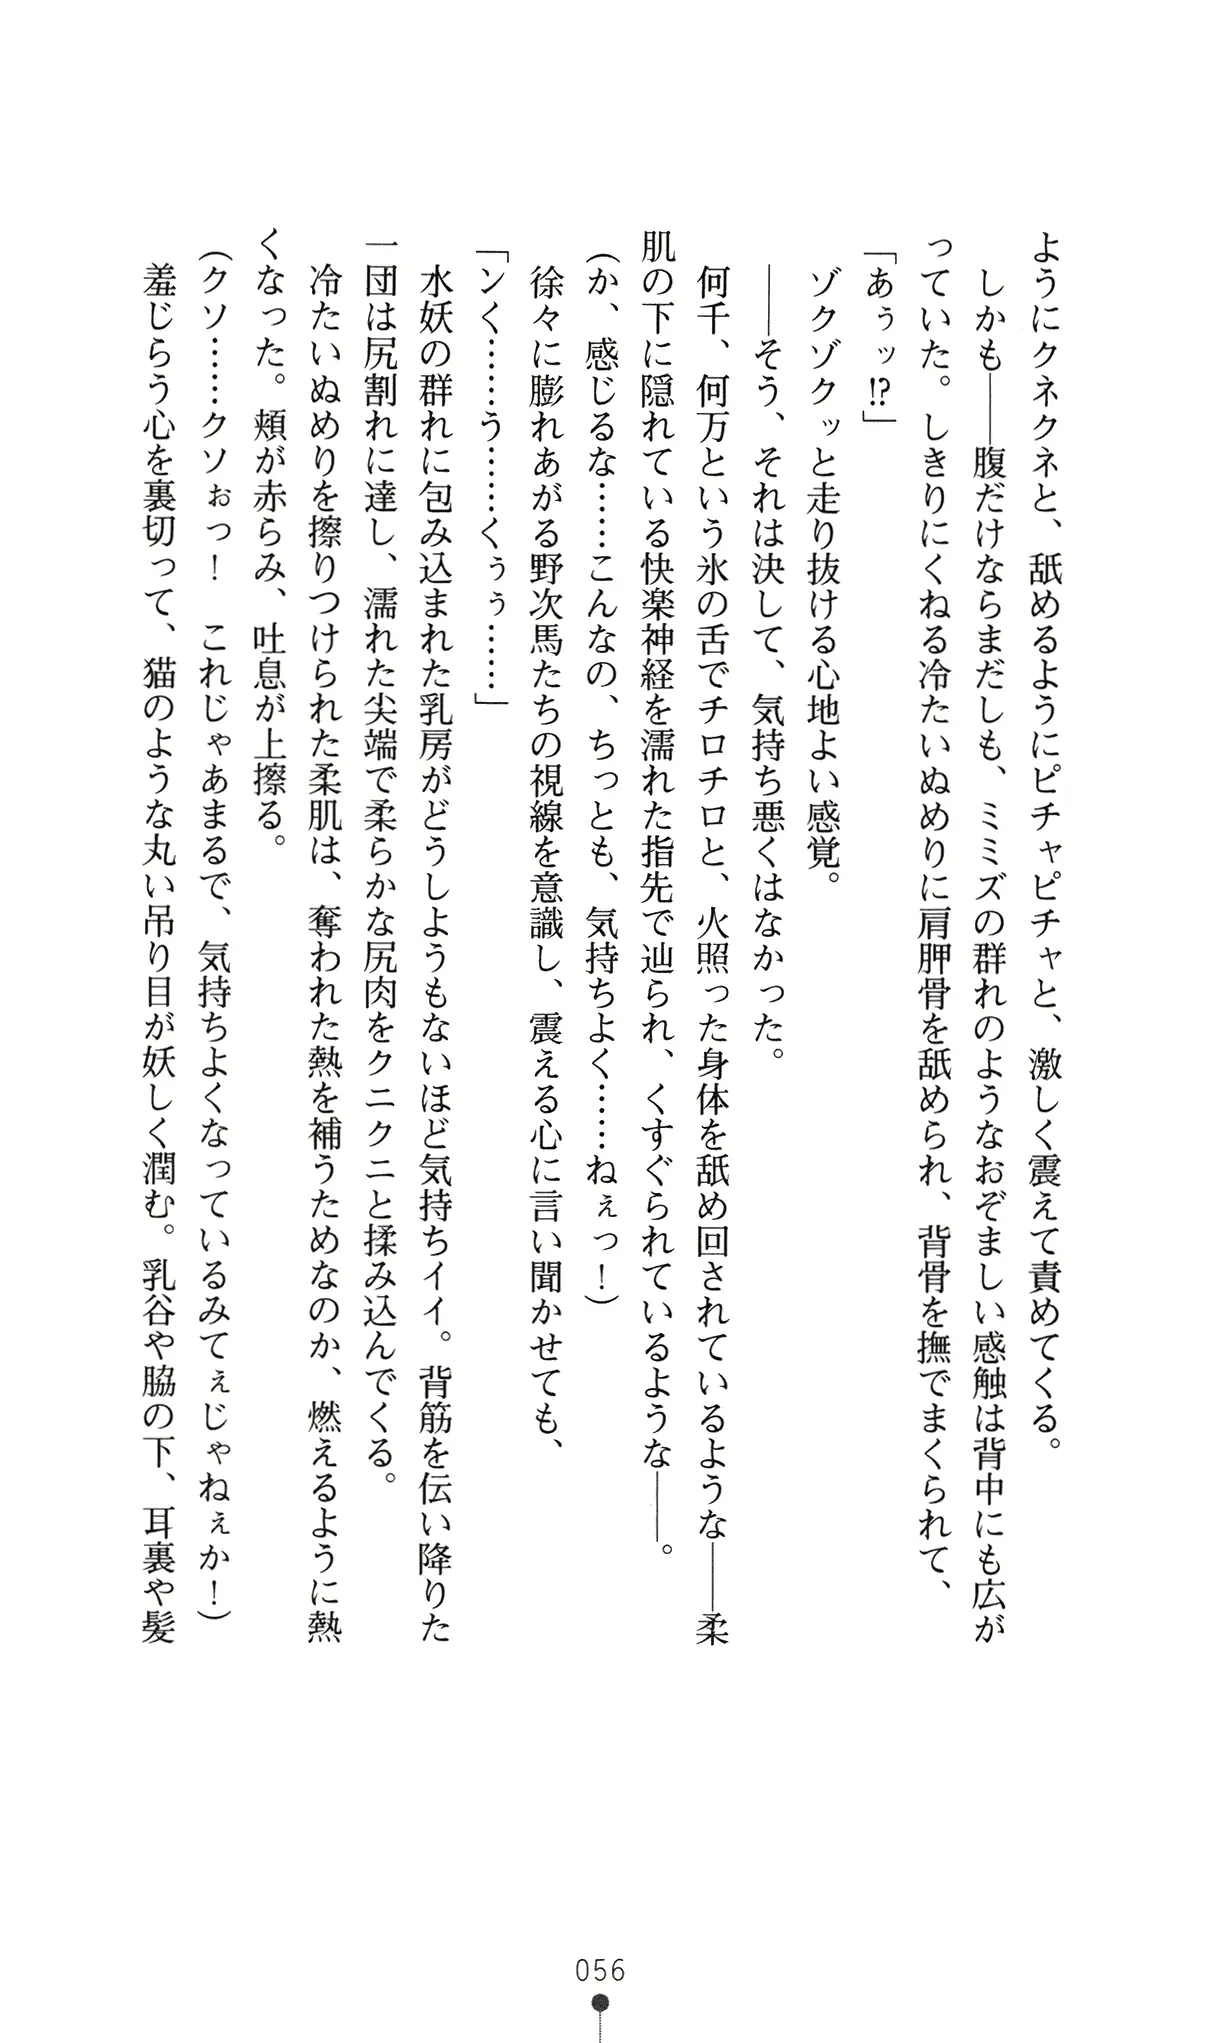 ようにクネクネと、舐めるようにピチャピチャと、激しく震えて責めてくる。
しかも――腹だけならまだしも、ミミズの群れのようなおぞましい感触は背中にも広が
っていた。しきりにくねる冷たいぬめりに肩胛骨を舐められ、背骨を撫でまくられて、
「あぅッ!?」
ゾクゾクッと走り抜ける心地よい感覚。
――そう、それは決して、気持ち悪くはなかった。
何千、何万という氷の舌でチロチロと、火照った身体を舐め回されているような――柔
肌の下に隠れている快楽神経を濡れた指先で辿られ、くすぐられているような――。
(か、感じるな……こんなの、ちっとも、気持ちよく……ねぇっ!)
徐々に膨れあがる野次馬たちの視線を意識し、震える心に言い聞かせても、
「ンく……う……くぅぅ……」
水妖の群れに包み込まれた乳房がどうしようもないほど気持ちイイ。背筋を伝い降りた
一団は尻割れに達し、濡れた尖端で柔らかな尻肉をクニクニと揉み込んでくる。
冷たいぬめりを擦りつけられた柔肌は、奪われた熱を補うためなのか、燃えるように熱
くなった。頬が赤らみ、吐息が上擦る。
(クソ……クソぉっ! これじゃあまるで、気持ちよくなっているみてぇじゃねぇか!)
羞じらう心を裏切って、猫のような丸い吊り目が妖しく潤む。乳谷や脇の下、耳裏や髪
056